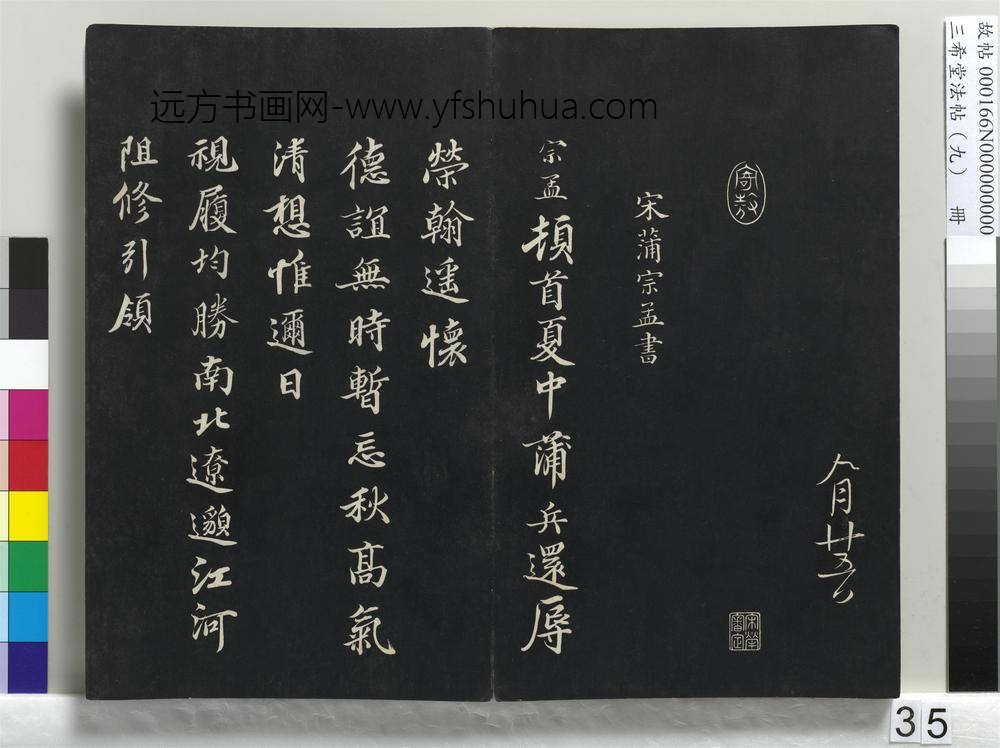 八月廿五日
宋犖審定
宋蒲宗孟書
宗孟頓首夏中蒲兵還辱
榮翰遥懷
德誼無時暫忘秋高氣
清想惟邇日
視履均勝南北遼邈江河
阻修引領
远方书画网-www.yfshuhua.com
故帖 000166N000000000
三希堂法帖（九） 冊
35